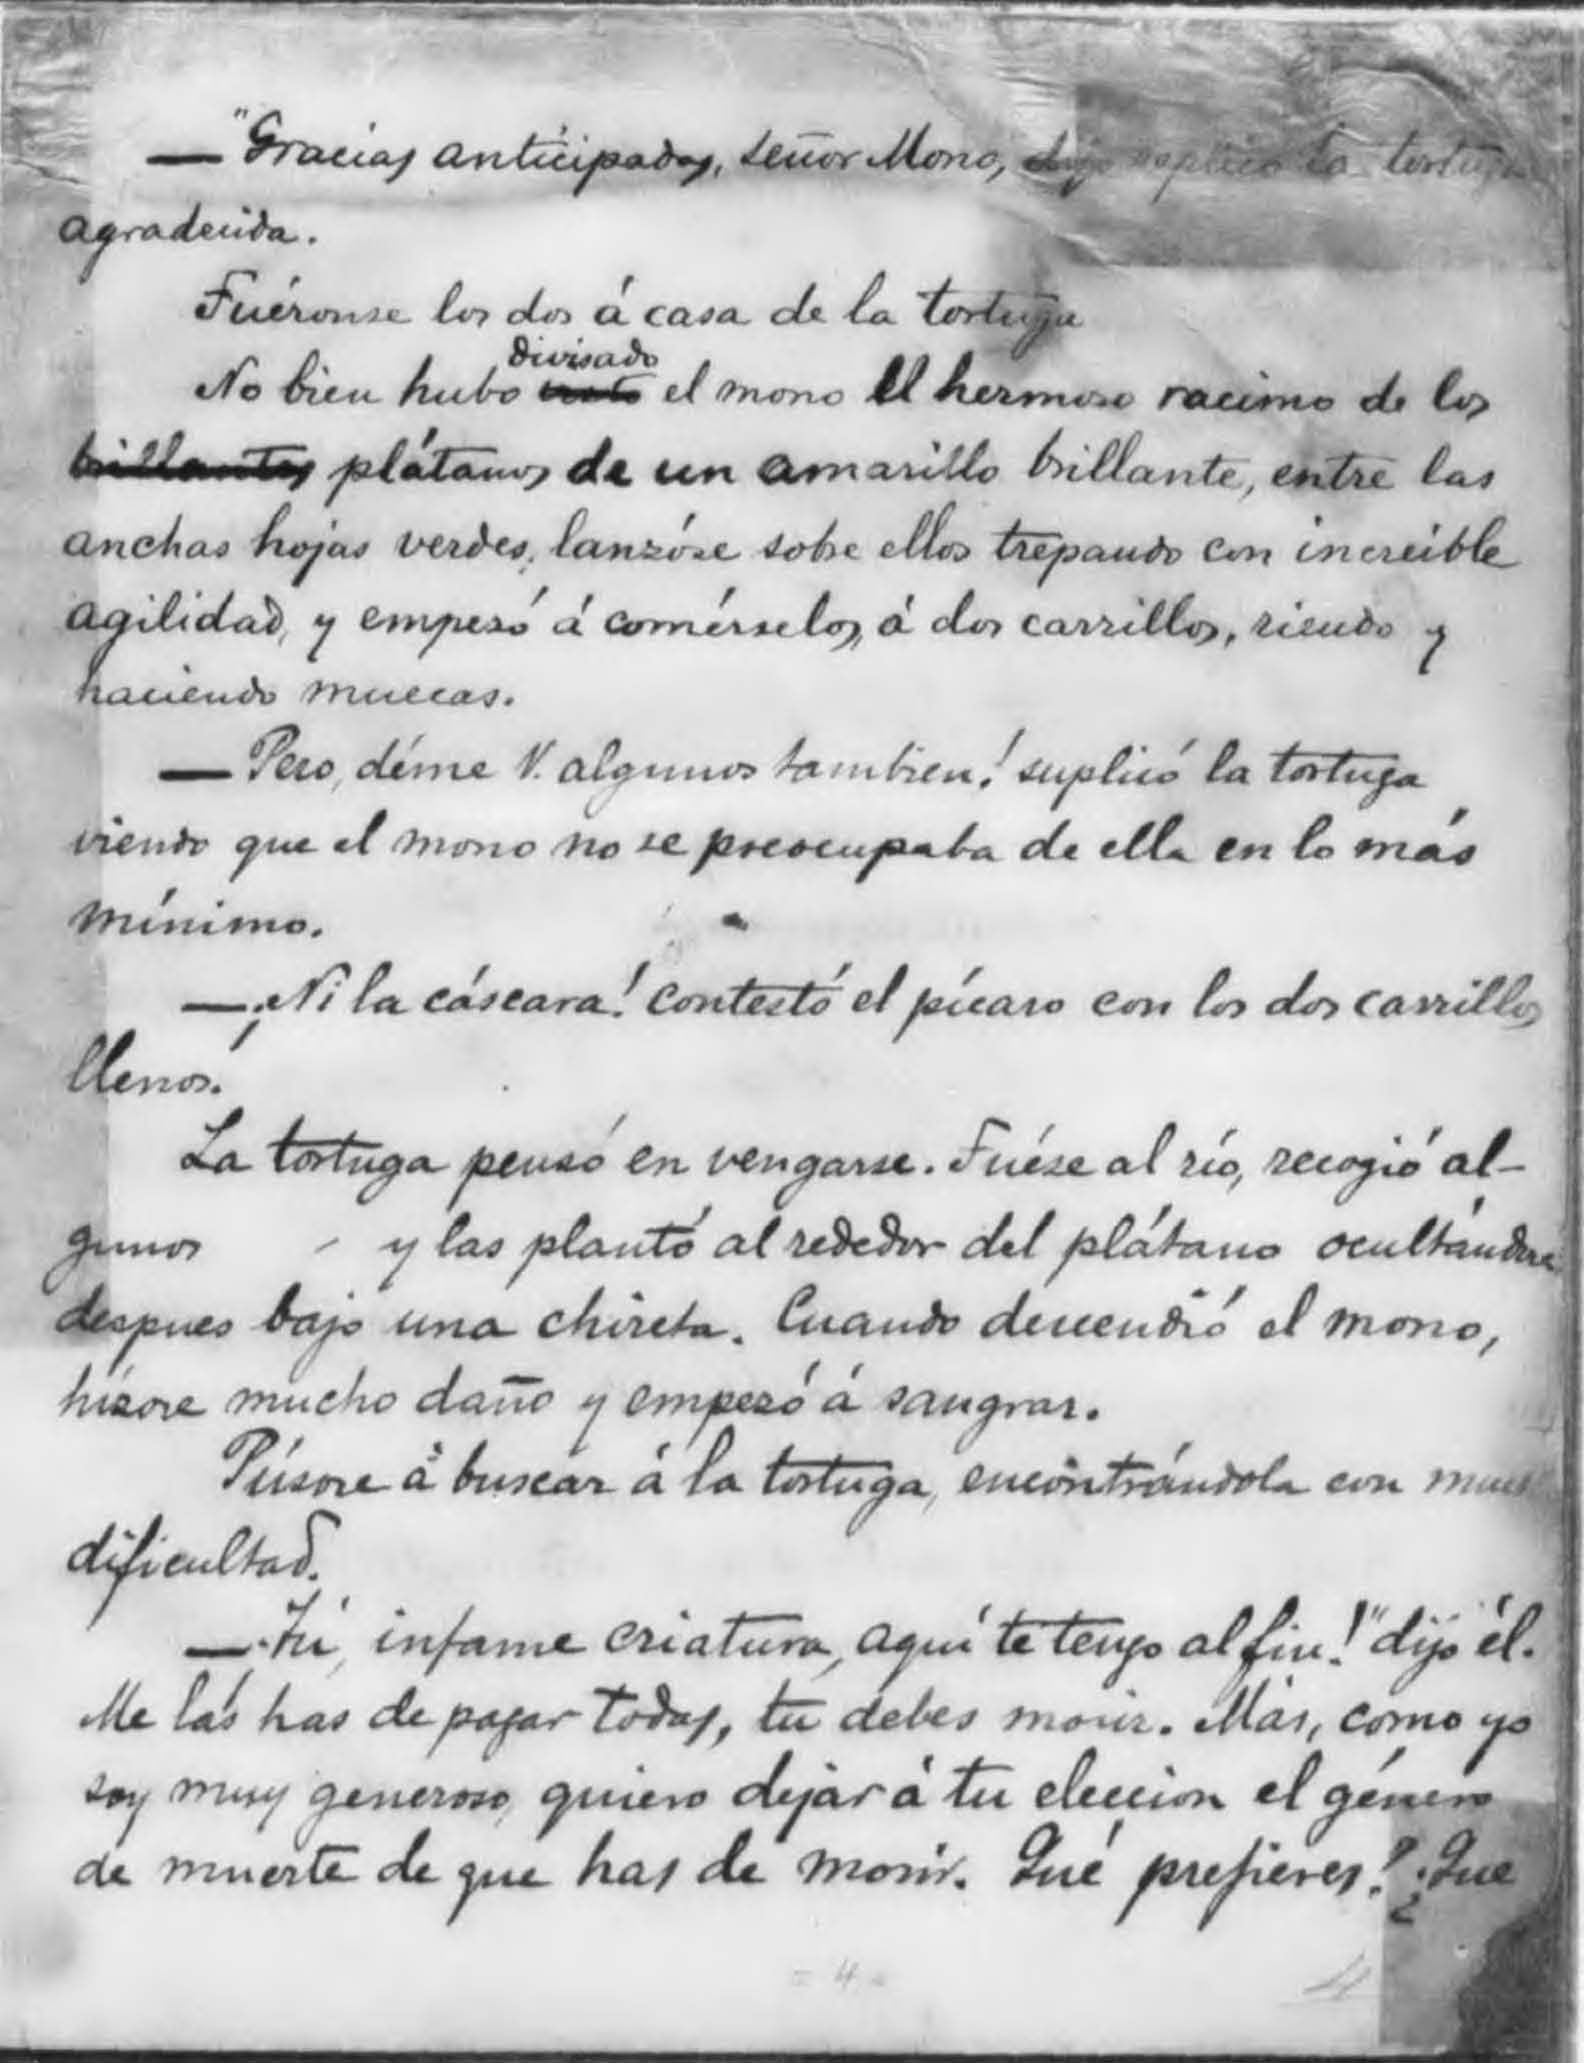 — "Gracias anticipadas, señor Mono, replicó la tortuga
agradecida.
Fuéronse los dos á casa de la tortuga
divisado
No bien hubo visto el mono el hermoso racimo de los
brillantes plátanos de un amarillo brillante, entre las
anchas hojas verdes, lanzóse sobre ellos trepando con increible
agilidad, y empezó á comérselos, á dos carrillos, riendo y
haciendo muecas.
— Pero, déme V. algunos tambien! suplicó la tortuga
viendo que el mono no se preocupaba de ella en lo más
mínimo.
— ¡Ni la cáscara! contestó el pícaro con los dos carrillos
llenos.
La tortuga pensó en vengarse. Fuése al río, recogió al-
gunos - y las plantó al rededor del plátano ocultándose
despues bajo una chireta. Cuando descendió el mono,
hízose mucho daño y empezó á sangrar.
Púsose á buscar á la tortuga, encontrándola con
dificultad.
— Tú, infame criatura, aquí te tengo al fin!" dijo él.
Me las has de pagar todas, tu debes morir. Más, como yo
soy muy generoso, quiero dejar á tu eleccion el género
de muerte de que has de morir. Qué prefieres? ¿Que
= 4 =
4